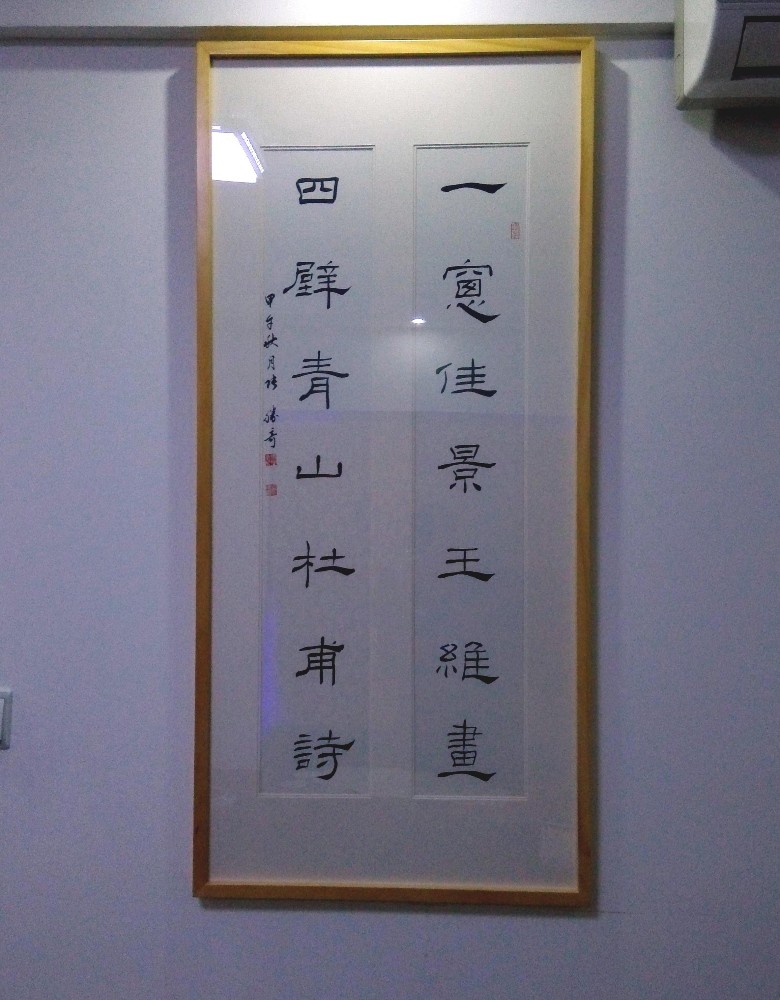 一窻佳景王維畫
四壁青山杜甫詩
甲午秋月張勝奇